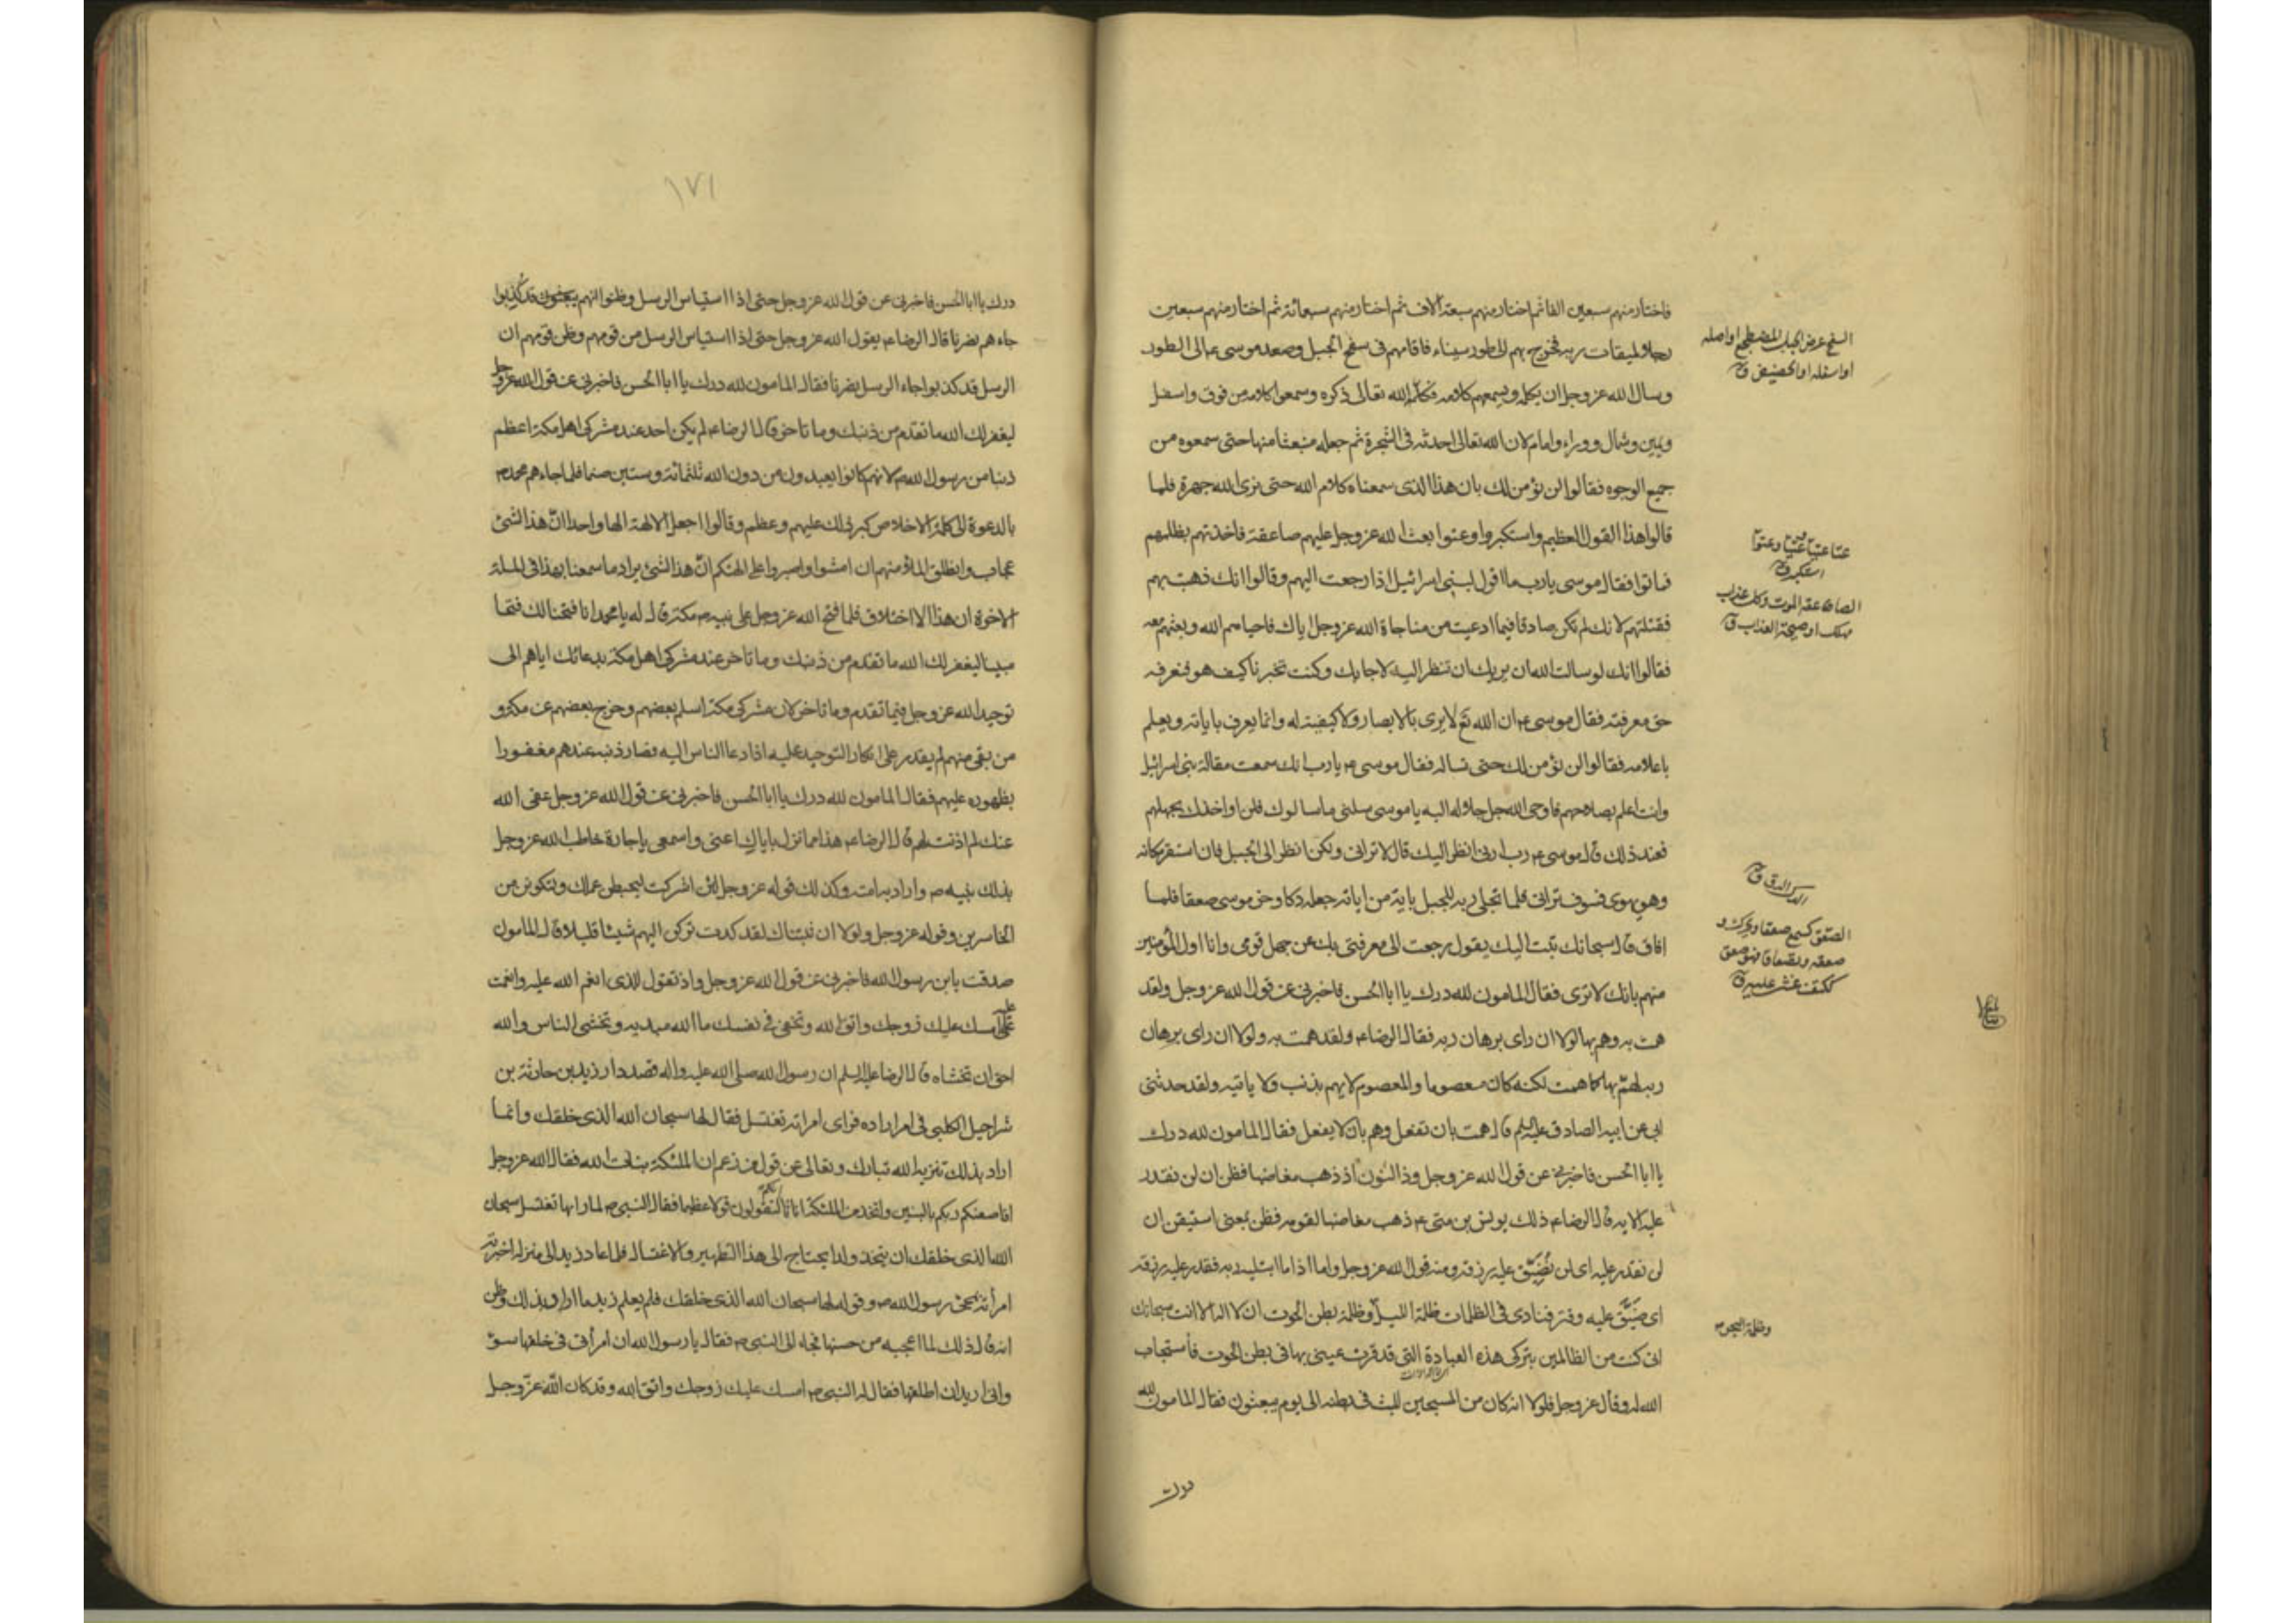 فاختار منهم سبعين الفا ثم اختار منهم سبعة آلاف ثم اختار منهم سبعمائة ثم اختار منهم سبعين
رجلا لميقات ربه فخرج بهم الى طور سيناء فاقامهم فى سفح الجبل وصعد موسى ع الى الطور
وسال الله عز وجل ان يكلمه ويسمعهم كلامه فكلمه الله تعالى ذكره وسمعوا كلامه من فوق واسفل
ويمين وشمال ووراء وامام لان الله تعالى احدثه فى الشجرة ثم جعله منبعثا منها حتى سمعوه من
جميع الوجوه فقالوا لن نؤمن لك بان هذا الذى سمعناه كلام الله حتى نرى الله جهرة فلما
قالوا هذا القول العظيم واستكبروا وعتوا بعث الله عز وجل عليهم صاعقة فاخذتهم بظلمهم
فماتوا فقال موسى يارب ما اقول لبنى اسرائيل اذا رجعت اليهم وقالوا انك ذهبت بهم
فقتلتهم لانك لم تكن صادقا فيما ادعيت من مناجاة الله عز وجل اياك فاحياهم الله وبعثهم معه
فقالوا انك لو سالت الله ان يريك ان تنظر اليه لاجابك وكنت تخبرنا كيف هو فنعرفه
حق معرفته فقال موسى ع ان الله تع لا يرى بالابصار ولا كيفية له وانما يعرف باياته ويعلم
باعلامه فقالوا لن نؤمن لك حتى تساله فقال موسى ع يارب انك سمعت مقالة بنى اسرائيل
وانت اعلم بصلاحهم فاوحى الله جل جلاله اليه ياموسى سلنى ما سالوك فلن اواخذك بجهلهم
فعند ذلك قال موسى ع رب ارنى انظر اليك قال لا ترانى ولكن انظر الى الجبل فان استقر مكانه
وهو يهوى فسوف ترانى فلما تجلى ربه للجبل باية من اياته جعله دكا وخر موسى صعقا فلما
افاق قال سبحانك تبت اليك يقول رجعت الى معرفتى بك عن جهل قومى وانا اول المؤمنين
منهم بانك لا ترى فقال المامون لله درك يا ابا الحسن فاخبرنى عن قول الله عز وجل ولقد
همت به وهم بها لولا ان راى برهان ربه فقال الرضا ع ولقد همت به ولولا ان راى برهان
ربه لهمّ بها كما همت لكنه كان معصوما والمعصوم لا يهم بذنب ولا ياتيه ولقد حدثنى
ابى عن ابيه الصادق عليه السلم قال همت بان تفعل وهم بان لا يفعل فقال المامون لله درك
يا ابا الحسن فاخبرنى عن قول الله عز وجل وذا النون اذ ذهب مغاضبا فظن ان لن نقدر
عليه الايه قال الرضا ع ذلك يونس بن متى ع ذهب مغاضبا لقومه فظن بمعنى استيقن ان
لن نقدر عليه اى لن نُضَيِّق عليه رزقه ومنه قول الله عز وجل واما اذا ما ابتليه ربه فقدر عليه رزقه
اى ضَيَّق عليه وقتر فنادى فى الظلمات ظلمة الليل وظلمة بطن الحوت ان لا اله الا انت سبحانك
انى كنت من الظالمين بتركى هذه العبادة التى قد قرت عينى بها فى بطن الحوت فاستجاب
الله له وقال عز وجل فلولا انه كان من المسبحين للبث فى بطنه الى يوم يبعثون فقال المامون لله
درك
السفح عرض الجبل المضطجع او اصله
او اسفله او الحضيض ق
عتا عتيا وعتيا وعتوا
استكبر ق
الصاعقة الموت وكل عذاب
مهلك او صيحة العذاب ق
الدك الدق ق
الصعق
وظلمة البحر م
١٧١
درك يا ابا الحسن فاخبرنى عن قول الله عز وجل حتى اذا استياس الرسل وظنوا انهم قد كُذِبوا
جاءهم نصرنا قال الرضا ع يقول الله عز وجل حتى اذا استياس الرسل من قومهم وظن قومهم ان
الرسل قد كذبوا جاء الرسل نصرنا فقال المامون لله درك يا ابا الحسن فاخبرنى عن قول الله عز وجل
ليغفر لك الله ما تقدم من ذنبك وما تاخر قال الرضا ع لم يكن احد عند مشركى اهل مكة اعظم
ذنبا من رسول الله ص لانهم كانوا يعبدون من دون الله ثلثمائة وستين صنما فلما جاءهم محمد ص
بالدعوة الى كلمة الاخلاص كبر ذلك عليهم وعظم وقالوا اجعل الالهة الها واحدا انّ هذا الشئ
عجاب وانطلق الملأ منهم ان امشوا واصبروا على الهتكم انّ هذا لشئ يراد ما سمعنا بهذا فى الملة
الاخرة ان هذا الا اختلاق فلما فتح الله عز وجل على نبيه ص مكة قال له يا محمد انا فتحنا لك فتحا
مبينا ليغفر لك الله ما تقدم من ذنبك وما تاخر عند مشركى اهل مكة بدعائك اياهم الى
توحيد الله عز وجل فيما تقدم وما تاخر لان مشركى مكة اسلم بعضهم وخرج بعضهم عن مكة و
من بقى منهم لم يقدر على انكار التوحيد عليه اذا دعا الناس اليه فصار ذنبه عندهم مغفورا
بظهوره عليهم فقال المامون لله درك يا ابا الحسن فاخبرنى عن قول الله عز وجل عفى الله
عنك لم اذنت لهم قال الرضا ع هذا مما نزل باياك اعنى واسمعى ياجارة خاطب الله عز وجل
بذلك نبيه ص واراد به امته وكذلك قوله عز وجل لئن اشركت ليحبطن عملك ولتكونن من
الخاسرين وقوله عز وجل ولولا ان ثبتناك لقد كدت تركن اليهم شيئا قليلا قال المامون
صدقت يابن رسول الله فاخبرنى عن قول الله عز وجل واذ تقول للذى انعم الله عليه وانعمت
عليه امسك عليك زوجك واتق الله وتخفى فى نفسك ما الله مبديه وتخشى الناس والله
احق ان تخشاه قال الرضا عليه السلم ان رسول الله صلى الله عليه واله قصد دار زيد بن حارثة بن
شراحيل الكلبى فى امر اراده فراى امراته تغتسل فقال لها سبحان الله الذى خلقك وانما
اراد بذلك تنزيه الله تبارك وتعالى عن قول من زعم ان الملئكة بنات الله فقال الله عز وجل
افاصفيكم ربكم بالبنين واتخذ من الملئكة اناثا انكم لتقولون قولا عظيما فقال النبى ص لما راها تغتسل سبحان
الله الذى خلقك ان يتخذ ولدا يحتاج الى هذا التطهير والاغتسال فلما عاد زيد الى منزله اخبرته
امرأته بمجئ رسول الله ص وقوله لها سبحان الله الذى خلقك فلم يعلم زيد ما اراد بذلك وظن
انه قال ذلك لما اعجبه من حسنها فجاء الى النبى ص فقال يا رسول الله ان امرأتى فى خلقها سوء
وانى اريد ان اطلقها فقال له النبى ص امسك عليك زوجك واتق الله وقد كان الله عزّ وجل